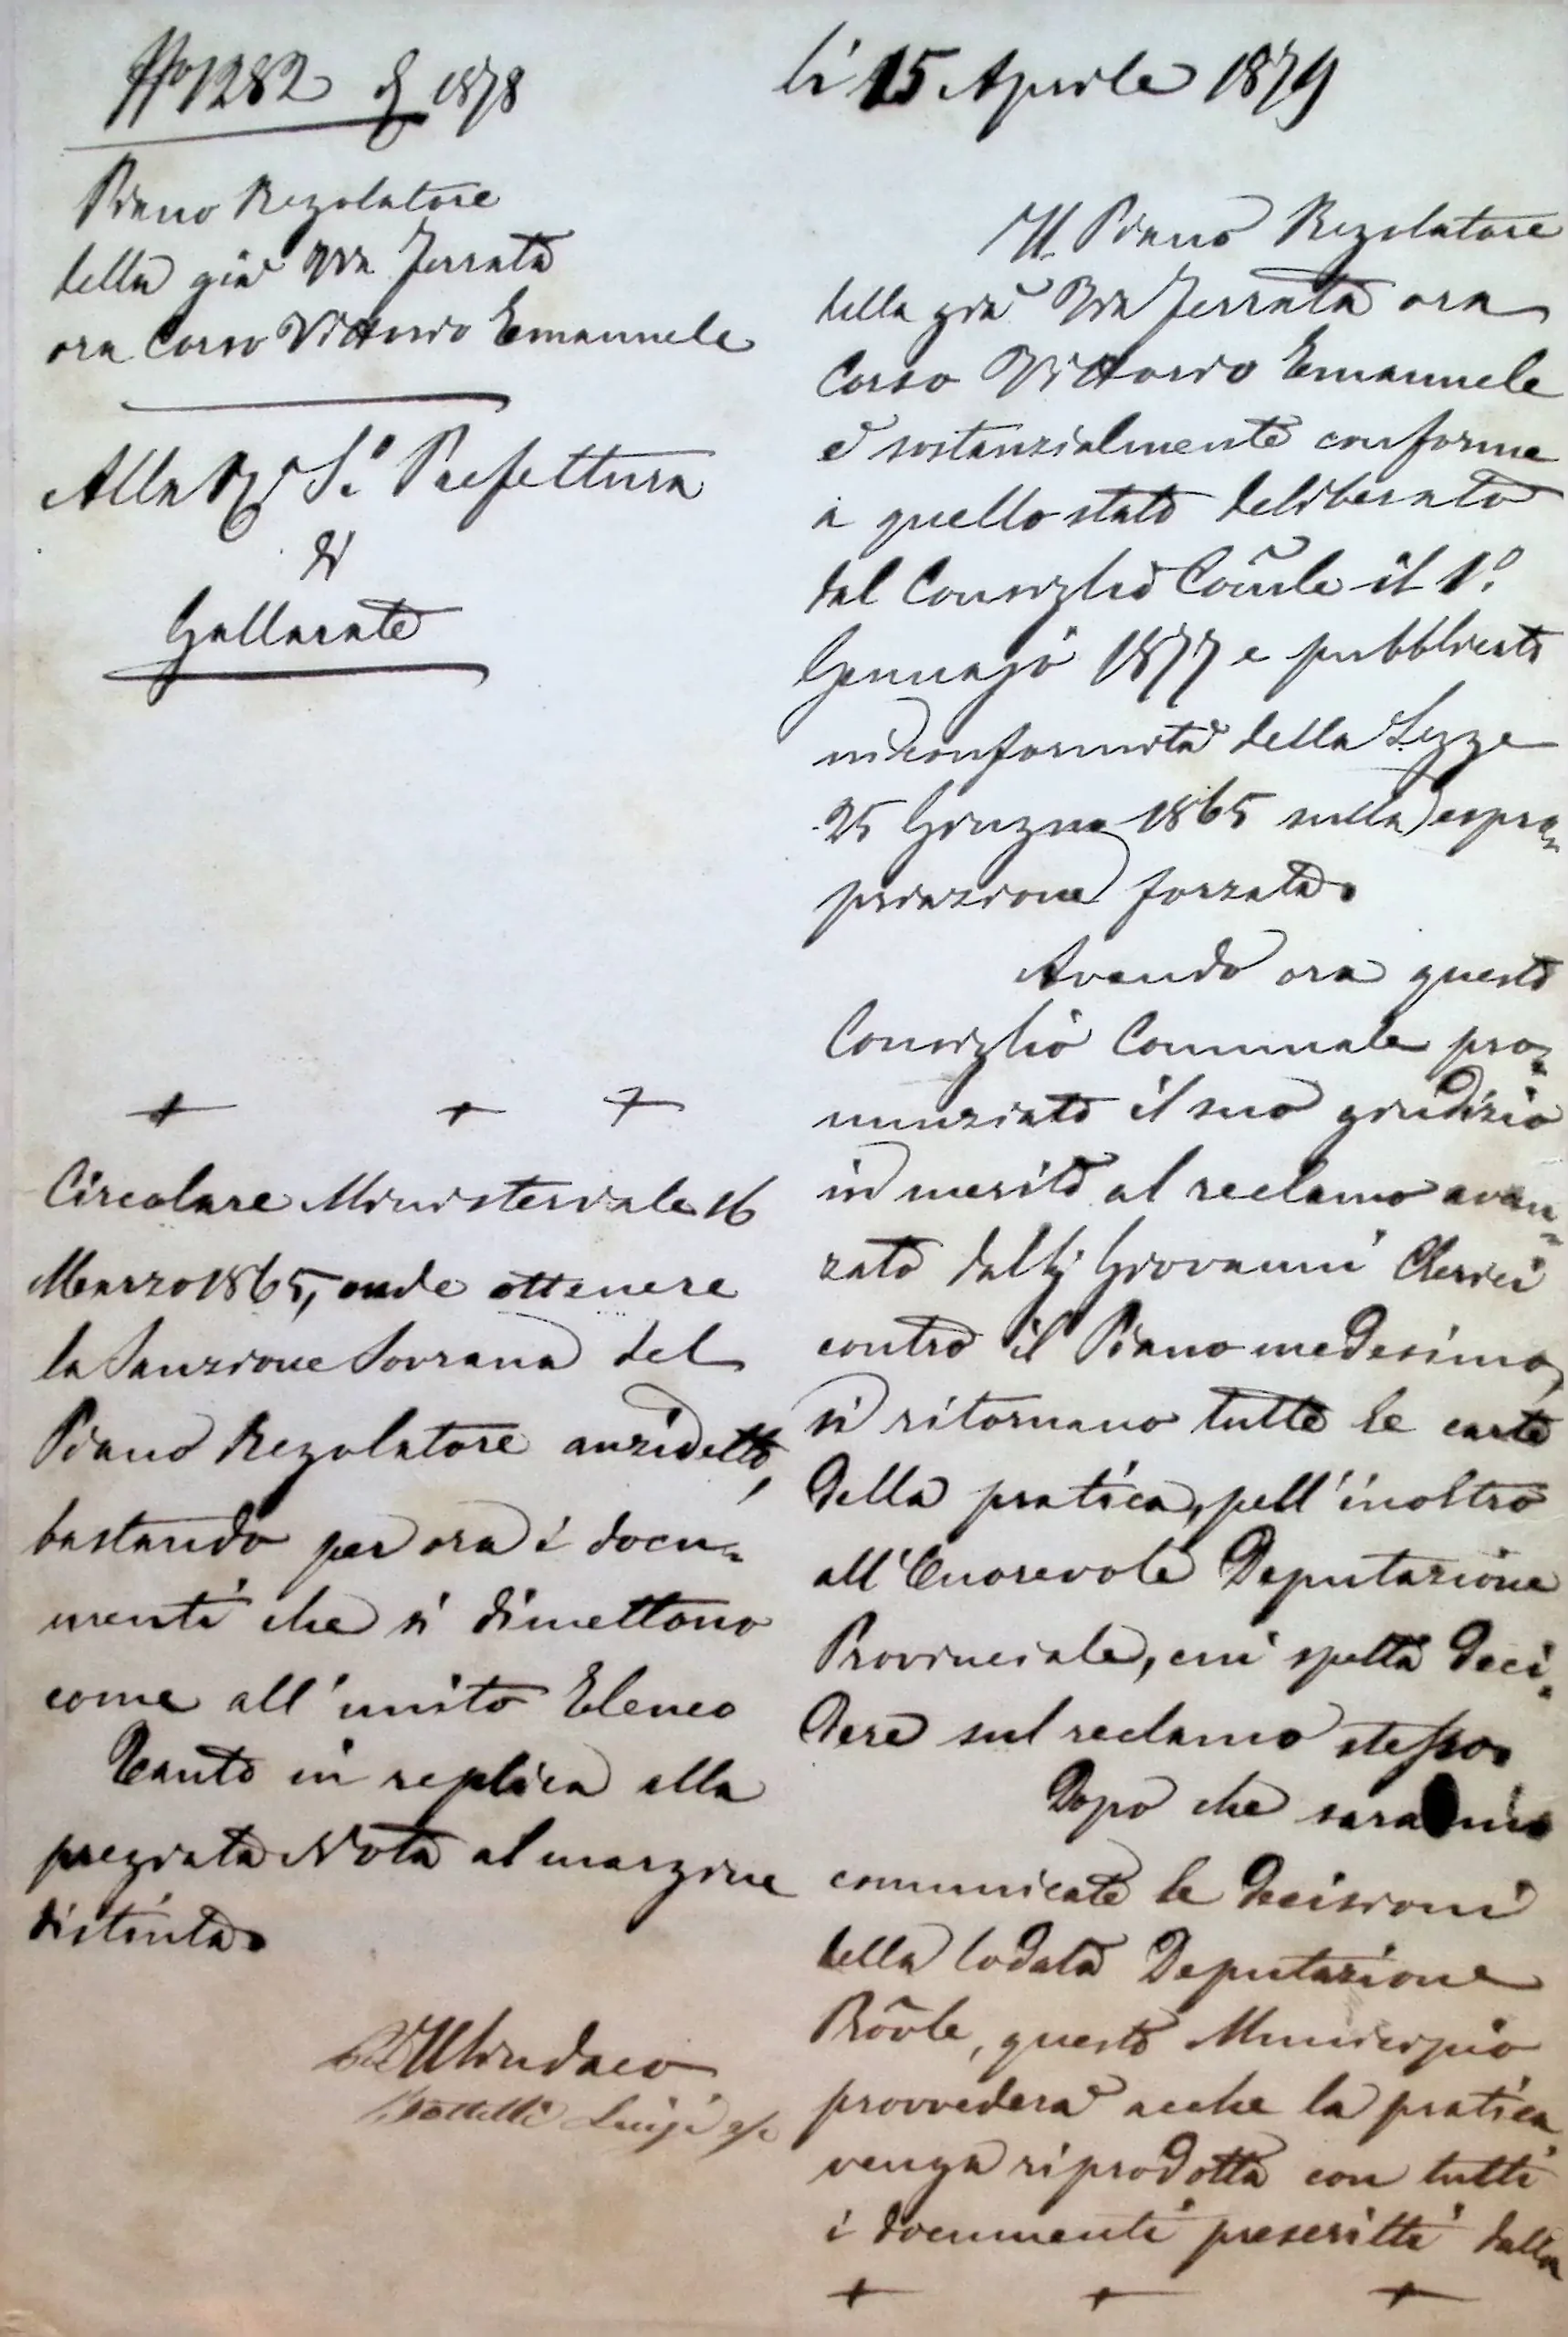 N° 1282 di 1878
Piano Regolatore
della già Via Ferrata
ora Corso Vittorio Emanuele
Alla Ra S.° Prefettura
di
Gallarate
li 15 Aprile 1879
Il Piano Regolatore
della già Via Ferrata ora
Corso Vittorio Emanuele
è sostanzialmente conforme
a quello stato deliberato
dal Consiglio Cõmle il 1°.
Gennajo 1877 e pubblicato
in conformità della Legge
25 Giugno 1865 sulla espro=
priazione forzata.
Avendo ora questo
Consiglio Comunale pro=
nunziato il suo giudizio
in merito al reclamo avan=
zato dal Sig Giovanni Clerici
contro il Piano medesimo,
si ritornano tutte le carte
della pratica, pell'inoltro
all'Onorevole Deputazione
Provinciale, cui spetta deci=
dere sul reclamo stesso.
Dopo che saranno
comunicate le decisioni
della lodata Deputazione
Prõvle, questo Municipio
provvederà acche la pratica
venga riprodotta con tutti
i documenti prescritti dalla
+ + +
+ + +
Circolare Ministeriale 16
Marzo 1865, onde ottenere
la Sanzione Sovrana del
Piano Regolatore anzidetto,
bastando per ora i docu=
menti che si dimettono
come all'unito Elenco
Tanto in replica alla
pregiata Nota al margine
distinta.
Il Sindaco
Luigi